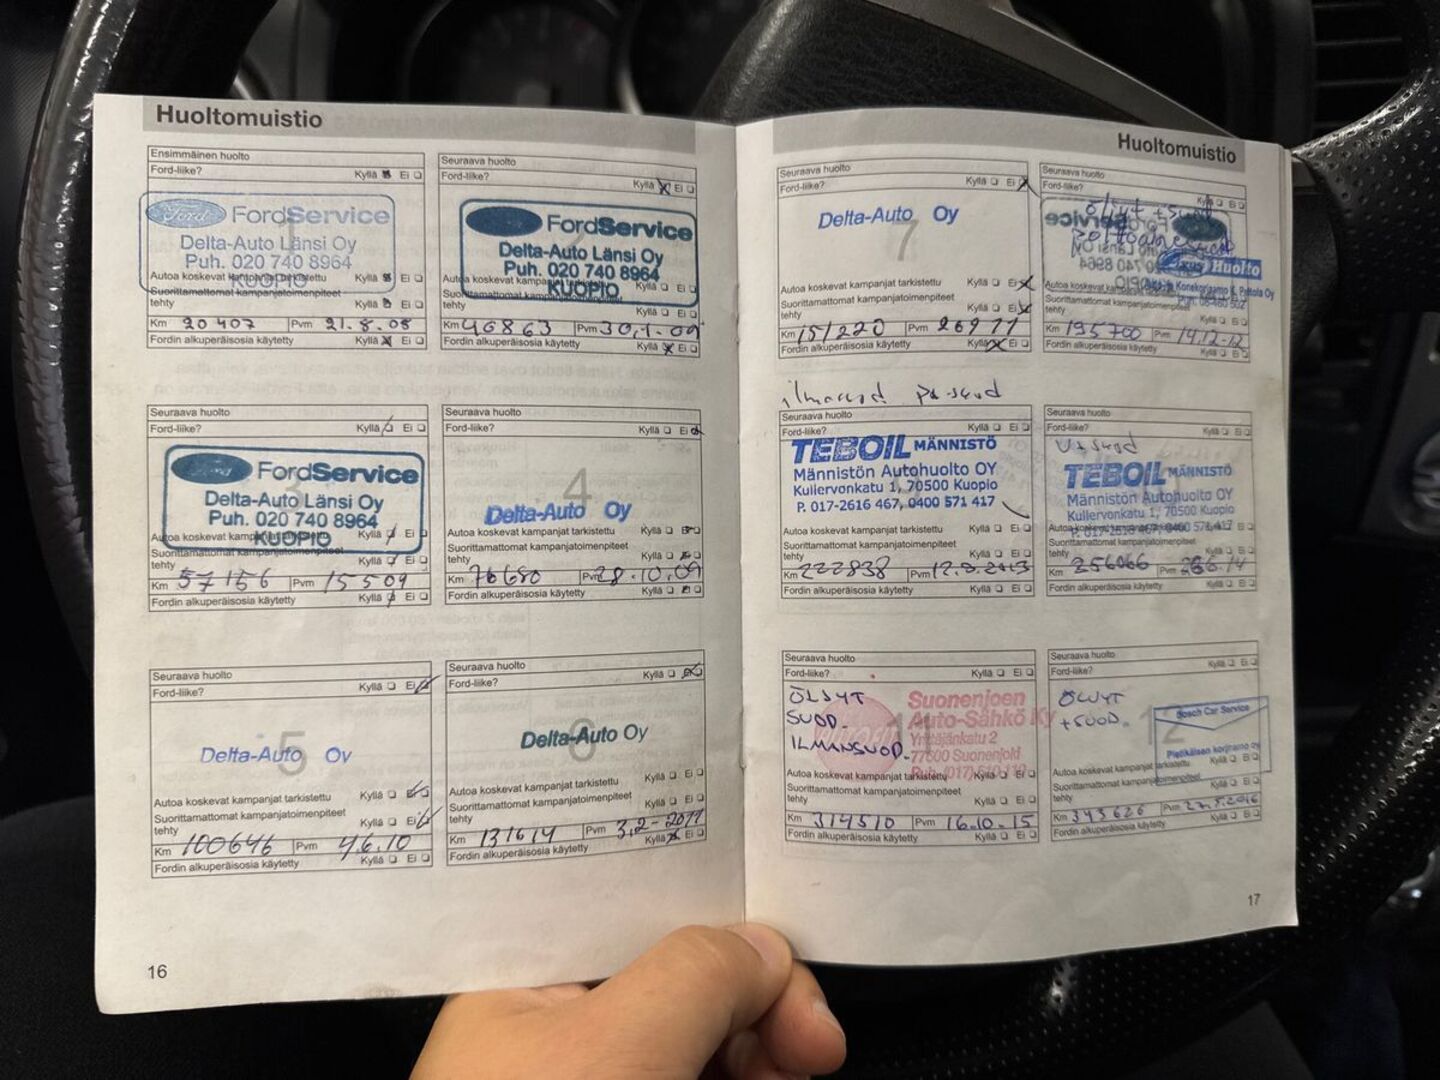 Huoltomuistio
Ensimmäinen huolto
Ford-liike? Kyllä Ei
Ford FordService
Delta-Auto Länsi Oy
Puh. 020 740 8964
KUOPIO
Autoa koskevat kampanjat tarkistettu Kyllä Ei
Suorittamattomat kampanjatoimenpiteet
tehty Kyllä Ei
Km 20407 Pvm 21.8.08
Fordin alkuperäisosia käytetty Kyllä Ei
Seuraava huolto
Ford-liike? Kyllä Ei
FordService
Delta-Auto Länsi Oy
Puh. 020 740 8964
KUOPIO
Autoa koskevat kampanjat tarkistettu Kyllä Ei
Suorittamattomat kampanjatoimenpiteet
tehty Kyllä Ei
Km 40863 Pvm 30.1.09
Fordin alkuperäisosia käytetty Kyllä Ei
Seuraava huolto
Ford-liike? Kyllä Ei
3
FordService
Delta-Auto Länsi Oy
Puh. 020 740 8964
KUOPIO
Autoa koskevat kampanjat tarkistettu Kyllä Ei
Suorittamattomat kampanjatoimenpiteet
tehty Kyllä Ei
Km 57156 Pvm 15509
Fordin alkuperäisosia käytetty Kyllä Ei
Seuraava huolto
Ford-liike? Kyllä Ei
4
Delta-Auto Oy
Autoa koskevat kampanjat tarkistettu Kyllä Ei
Suorittamattomat kampanjatoimenpiteet
tehty Kyllä Ei
Km 76680 Pvm 28.10.09
Fordin alkuperäisosia käytetty Kyllä Ei
Seuraava huolto
Ford-liike? Kyllä Ei
5
Delta-Auto Oy
Autoa koskevat kampanjat tarkistettu Kyllä Ei
Suorittamattomat kampanjatoimenpiteet
tehty Kyllä Ei
Km 100646 Pvm 4.6.10
Fordin alkuperäisosia käytetty Kyllä Ei
Seuraava huolto
Ford-liike? Kyllä Ei
6
Delta-Auto Oy
Autoa koskevat kampanjat tarkistettu Kyllä Ei
Suorittamattomat kampanjatoimenpiteet
tehty Kyllä Ei
Km 131614 Pvm 3.2-2011
Fordin alkuperäisosia käytetty Kyllä Ei
16
Huoltomuistio
Seuraava huolto
Ford-liike? Kyllä Ei
Delta-Auto Oy
7
Autoa koskevat kampanjat tarkistettu Kyllä Ei
Suorittamattomat kampanjatoimenpiteet
tehty Kyllä Ei
Km 151220 Pvm 26911
Fordin alkuperäisosia käytetty Kyllä Ei
Seuraava huolto
Ford-liike? Kyllä Ei
Huolto
Autoa koskevat kampanjat tarkistettu
Suorittamattomat kampanjatoimenpiteet
tehty Kyllä Ei
Km 195700 Pvm 14.12-12
Fordin alkuperäisosia käytetty Kyllä Ei
Seuraava huolto
Ford-liike? Kyllä Ei
TEBOIL MÄNNISTÖ
Männistön Autohuolto OY
Kullervonkatu 1, 70500 Kuopio
P. 017-2616 467, 0400 571 417
Autoa koskevat kampanjat tarkistettu Kyllä Ei
Suorittamattomat kampanjatoimenpiteet
tehty Kyllä Ei
Km 222838 Pvm
Fordin alkuperäisosia käytetty Kyllä Ei
Seuraava huolto
Ford-liike? Kyllä Ei
TEBOIL MÄNNISTÖ
Männistön Autohuolto OY
Kullervonkatu 1, 70500 Kuopio
P. 017-2616 467, 0400 571 417
Autoa koskevat kampanjat tarkistettu Kyllä Ei
Suorittamattomat kampanjatoimenpiteet
tehty Kyllä Ei
Km 256066 Pvm
Fordin alkuperäisosia käytetty Kyllä Ei
Seuraava huolto
Ford-liike? Kyllä Ei
ÖLJYT
SUOD.
ILMANSUOD.
11
Suonenjoen
Auto-Sähkö Ky
Yrittäjänkatu 2
77600 Suonenjoki
Autoa koskevat kampanjat tarkistettu Kyllä Ei
Suorittamattomat kampanjatoimenpiteet
tehty Kyllä Ei
Km 314510 Pvm 16.10.15
Fordin alkuperäisosia käytetty Kyllä Ei
Seuraava huolto
Ford-liike? Kyllä Ei
ÖLJYT
+SUOD.
12
Bosch Car Service
Autoa koskevat kampanjat tarkistettu Kyllä Ei
Suorittamattomat kampanjatoimenpiteet
tehty Kyllä Ei
Km 343626 Pvm 27.5.2016
Fordin alkuperäisosia käytetty Kyllä Ei
17